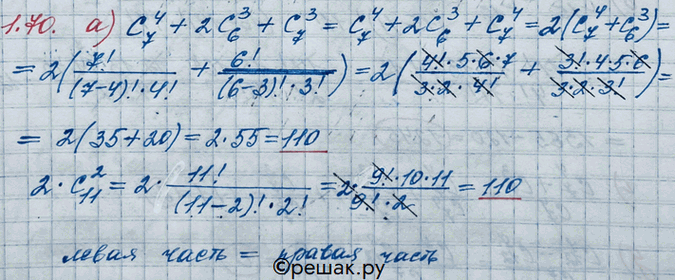 1.70. а) C₇⁴ + 2C₆³ + C₇³ = C₇⁴ + 2C₆³ + C₇⁴ = 2(C₇⁴ + C₆³) =
= 2(7!/((7-4)!·4!) + 6!/((6-3)!·3!)) = 2(4!·5·6·7/(3·2·4!) + 3!·4·5·6/(3·2·3!)) =
= 2(35+20) = 2·55 = 110
2·C₁₁² = 2·11!/((11-2)!·2!) = 2·9!·10·11/(9!·2) = 110
левая часть = правая часть
©решак.ру